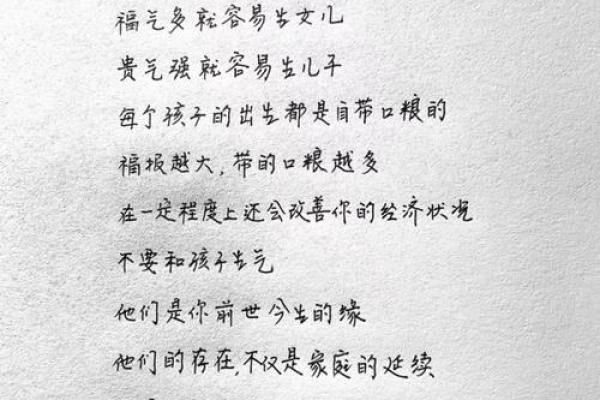 福气多就容易生女儿
贵气强就容易生儿子
每个孩子的出生都是自带口粮的
福报越大,带的口粮越多
在一定程度上还会改善你的经济状况
不要和孩子生气
他们是你前世今生的缘
他们的存在,不仅是家庭的延续